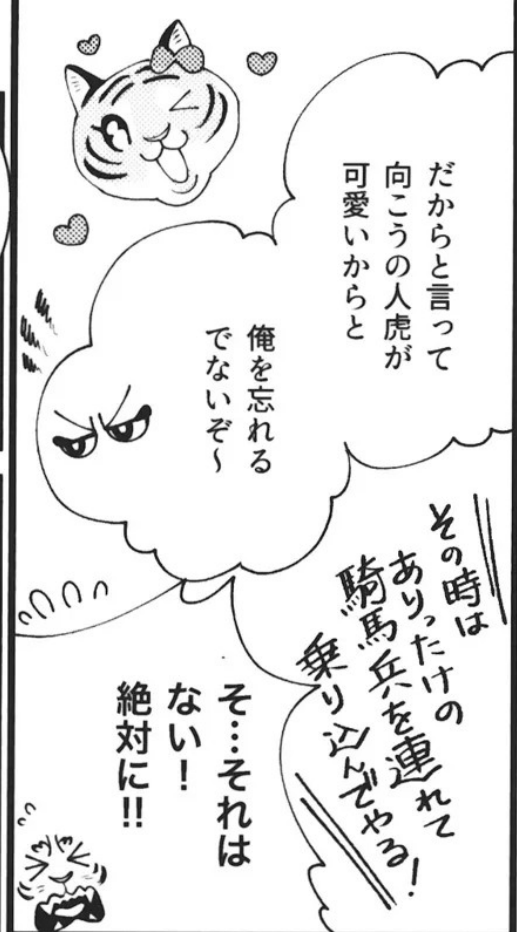 だからと言って
向こうの人虎が
可愛いからと
俺を忘れる
でないぞ～
その時は
ありったけの
騎馬兵を連れて
乗り込んでやる！
そ…それは
ない！
絶対に!!